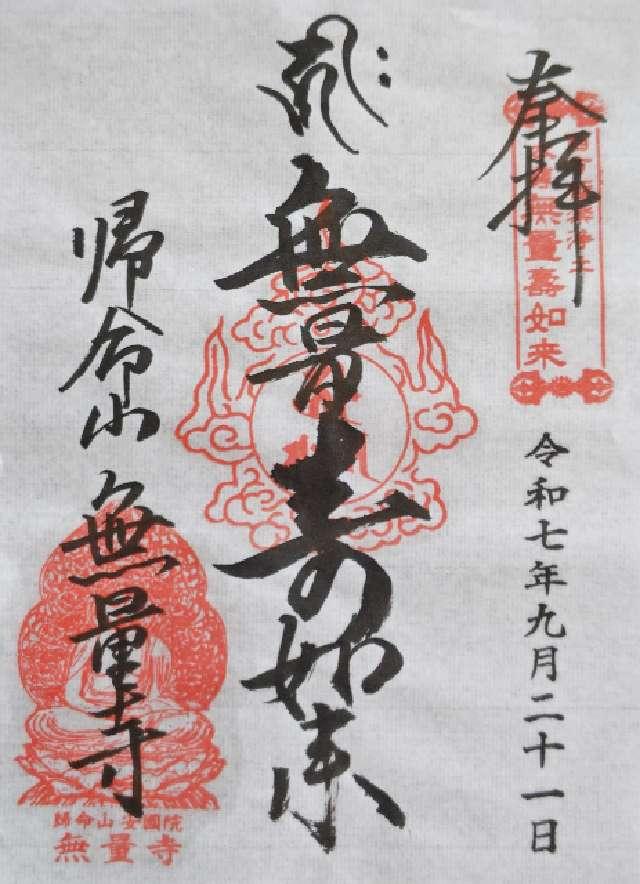 奉拝
無量壽如来
令和七年九月二十一日
無量寿如来
帰命山無量寺
歸命山安國院
無量寺